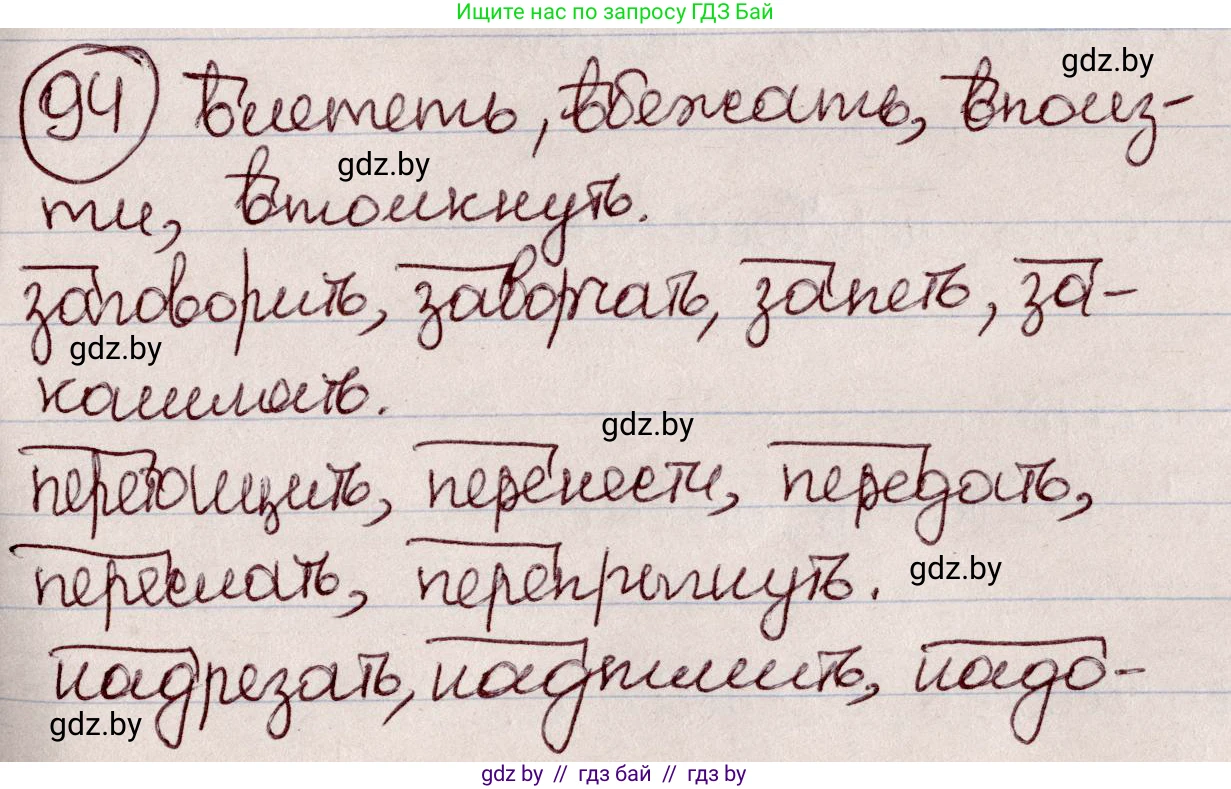 Ищите нас по запросу ГДЗ Бай
gdz.by
94 влететь, вбежать, вполз-
gdz.by
ти, втолкнуть.
заговорить, заворчать, запеть, за-
gdz.by
кашлять.
gdz.by
перетащить, перенести, передать,
переслать, перепрыгнуть.
gdz.by
надрезать, надпилить, надо-
gdz.by
gdz by // гдз бай // гдз by